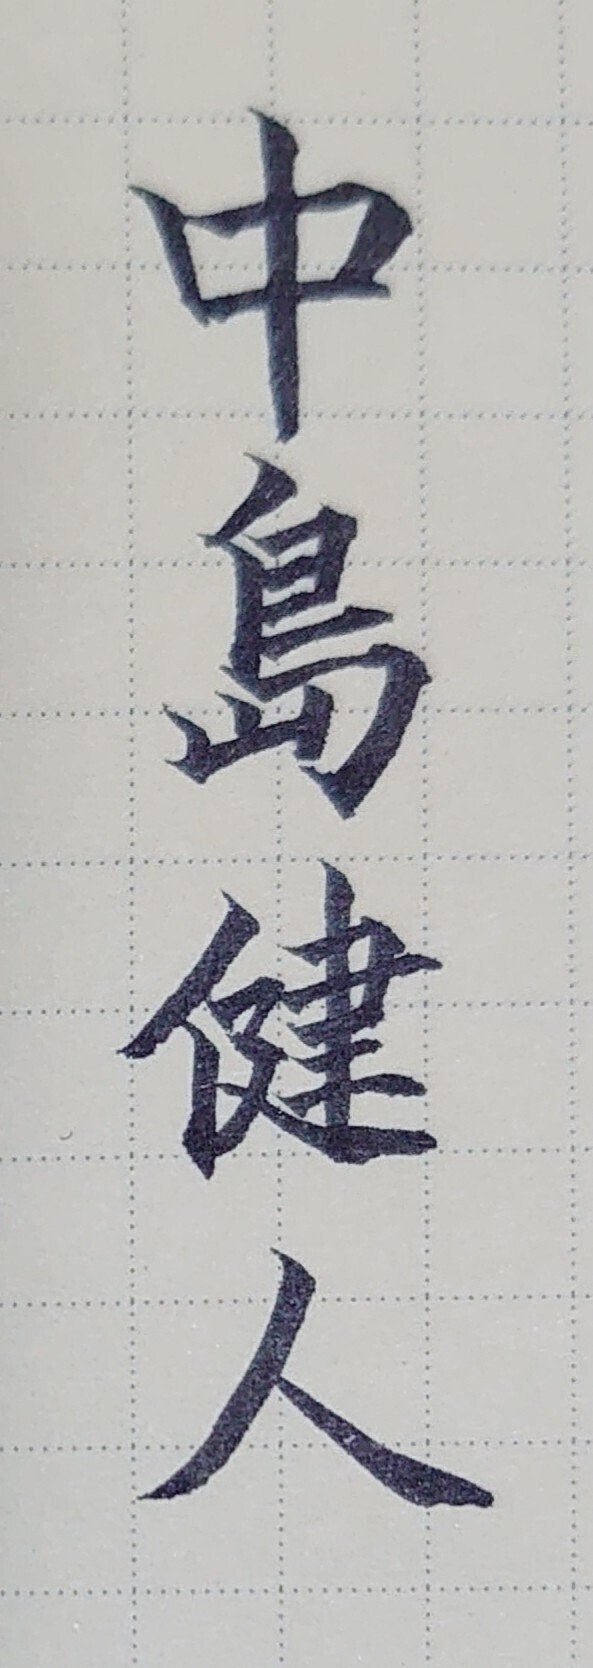 中島健人